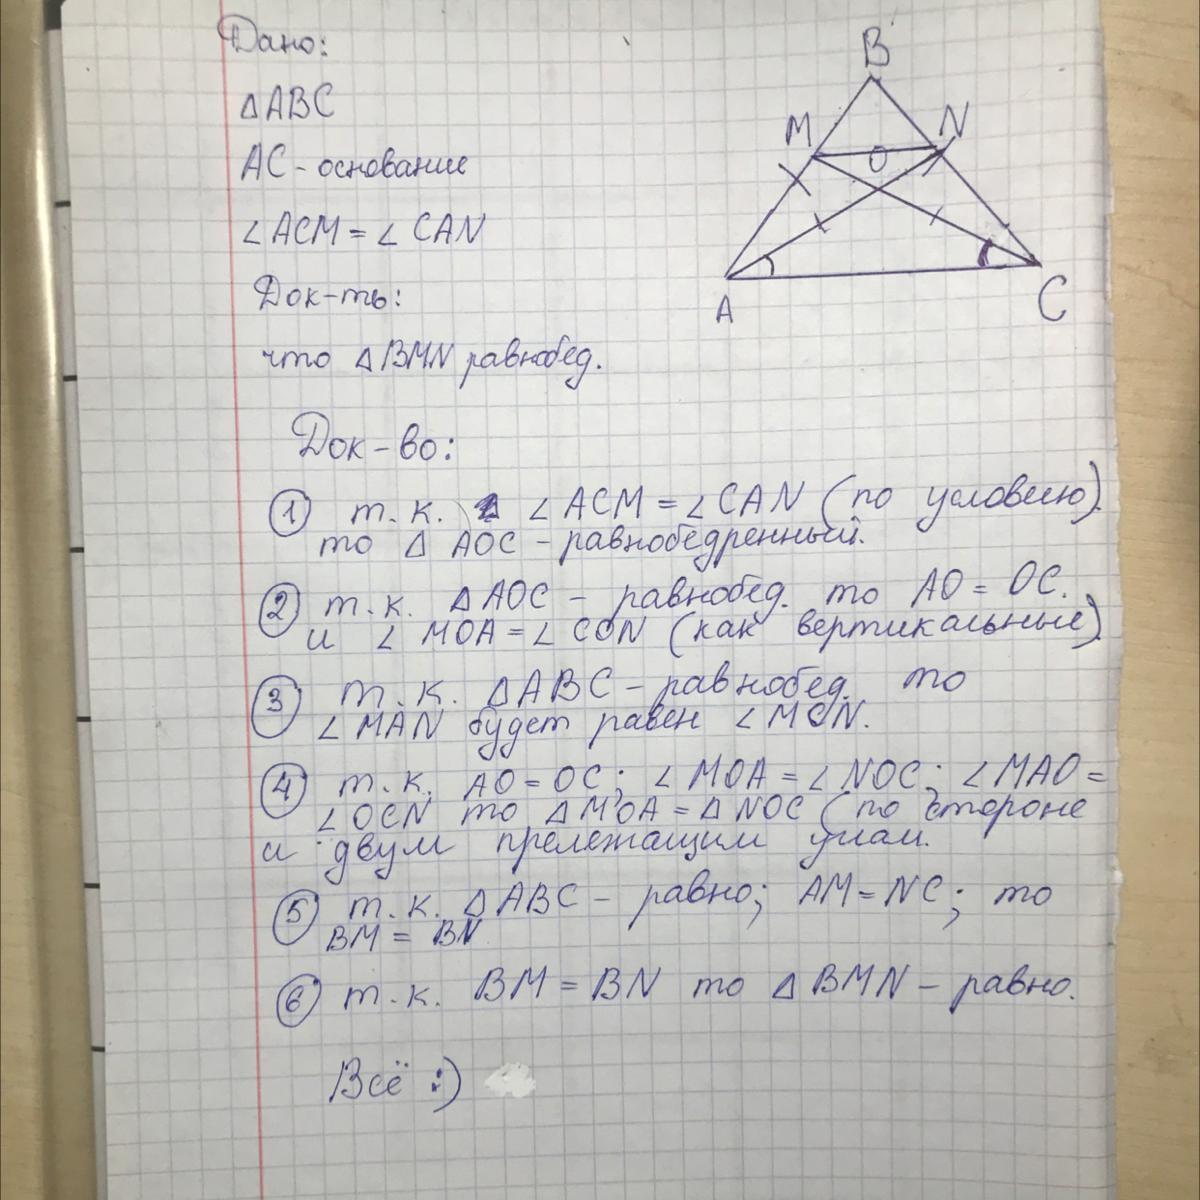 Дано:
△ABC
AC - основание
∠ACM = ∠CAN
Док-ть:
что △BMN равнобед.
B
M
N
O
A
C
Док-во:
① т.к. ∠ACM = ∠CAN (по условию).
то △AOC - равнобедренный.
② т.к. △AOC - равнобед. то AO = OC.
и ∠MOA = ∠CON (как вертикальные)
③ т.к. △ABC - равнобед. то
∠MAN будет равен ∠MCN.
④ т.к. AO = OC; ∠MOA = ∠NOC; ∠MAO =
∠OCN то △MOA = △NOC (по стороне
и двум прележащим углам.
⑤ т.к. △ABC - равно; AM = NC; то
BM = BN
⑥ т.к. BM = BN то △BMN - равно.
Всё :)